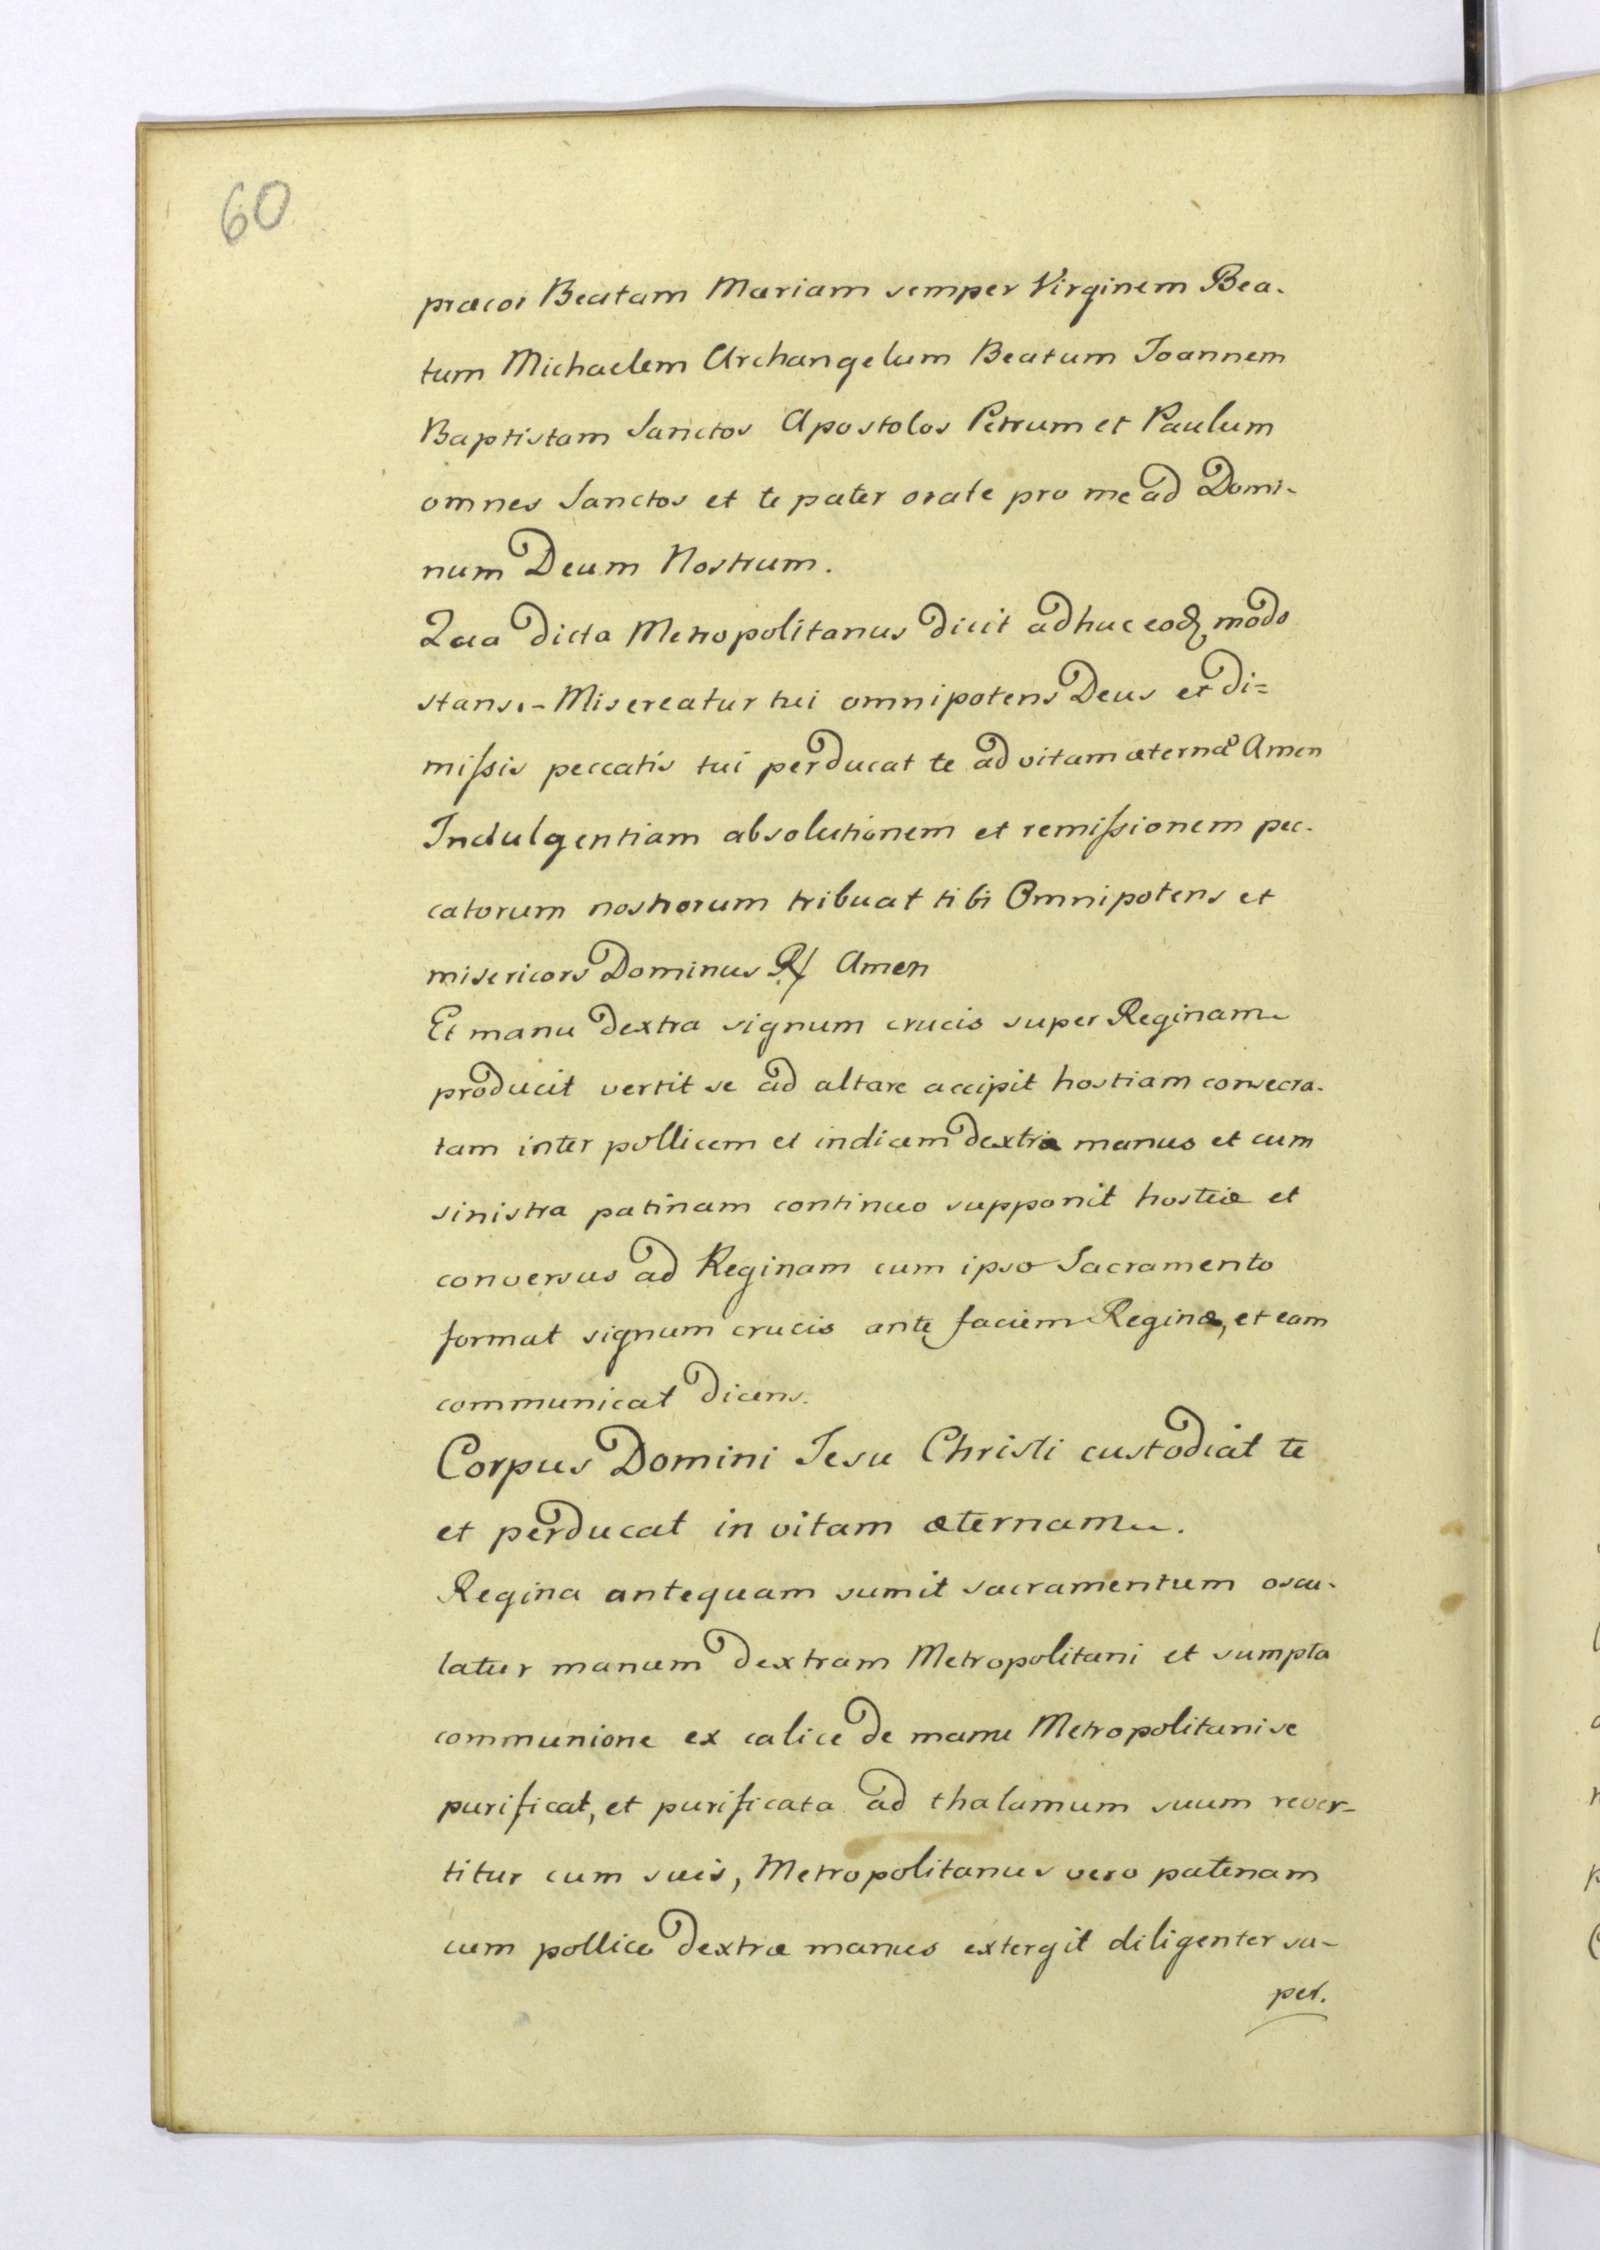 60
præcor Beatam Mariam semper Virginem Bea-
tum Michaelem Archangelum Beatum Joannem
Baptistam Sanctos Apostolos Petrum et Paulum
omnes Sanctos et te pater orate pro me ad Domi-
num Deum Nostrum.
Qua dicta Metropolitanus dicit adhuc eodꝫ modo
stans.- Misereatur tui omnipotens Deus et di=
miſsis peccatis tui perducat te ad vitam æternã Amen
Indulgentiam absolutionem et remiſsionem pec-
catorum nostrorum tribuat tibi Omnipotens et
misericors Dominus ℟ Amen
Et manu dextra signum crucis super Reginam
producit vertit se ad altare accipit hostiam consecra-
tam inter pollicem et indicem dextræ manus et cum
sinistra patinam continuo supponit hostiæ et
conversus ad Reginam cum ipso Sacramento
format signum crucis ante faciem Reginæ, et eam
communicat dicens.
Corpus Domini Jesu Christi custodiat te
et perducat in vitam æternam.
Regina antequam sumit sacramentum oscu-
latur manum dextram Metropolitani et sumpta
communione ex calice de manu Metropolitani se
purificat, et purificata ad thalamum suum rever-
titur cum suis, Metropolitanus vero patenam
cum pollice dextræ manus extergit diligenter su-
per.